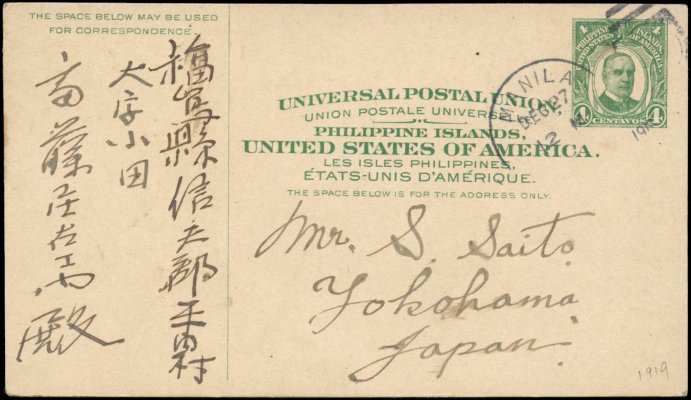 THE SPACE BELOW MAY BE USED
FOR CORRESPONDENCE.
福島縣信夫郡平田村
大字小田
藤庄 殿
PHILIPPINE ISLANDS
UNITED STATES OF AMERICA
4 4
4 CENTAVOS 4
MANILA
DEC 27
12 M
191
UNIVERSAL POSTAL UNION.
UNION POSTALE UNIVERSELLE.
PHILIPPINE ISLANDS.
UNITED STATES OF AMERICA.
LES ISLES PHILIPPINES.
ÉTATS-UNIS D'AMÉRIQUE.
THE SPACE BELOW IS FOR THE ADDRESS ONLY.
Mr. S. Saito
Yokohama
Japan.
1919